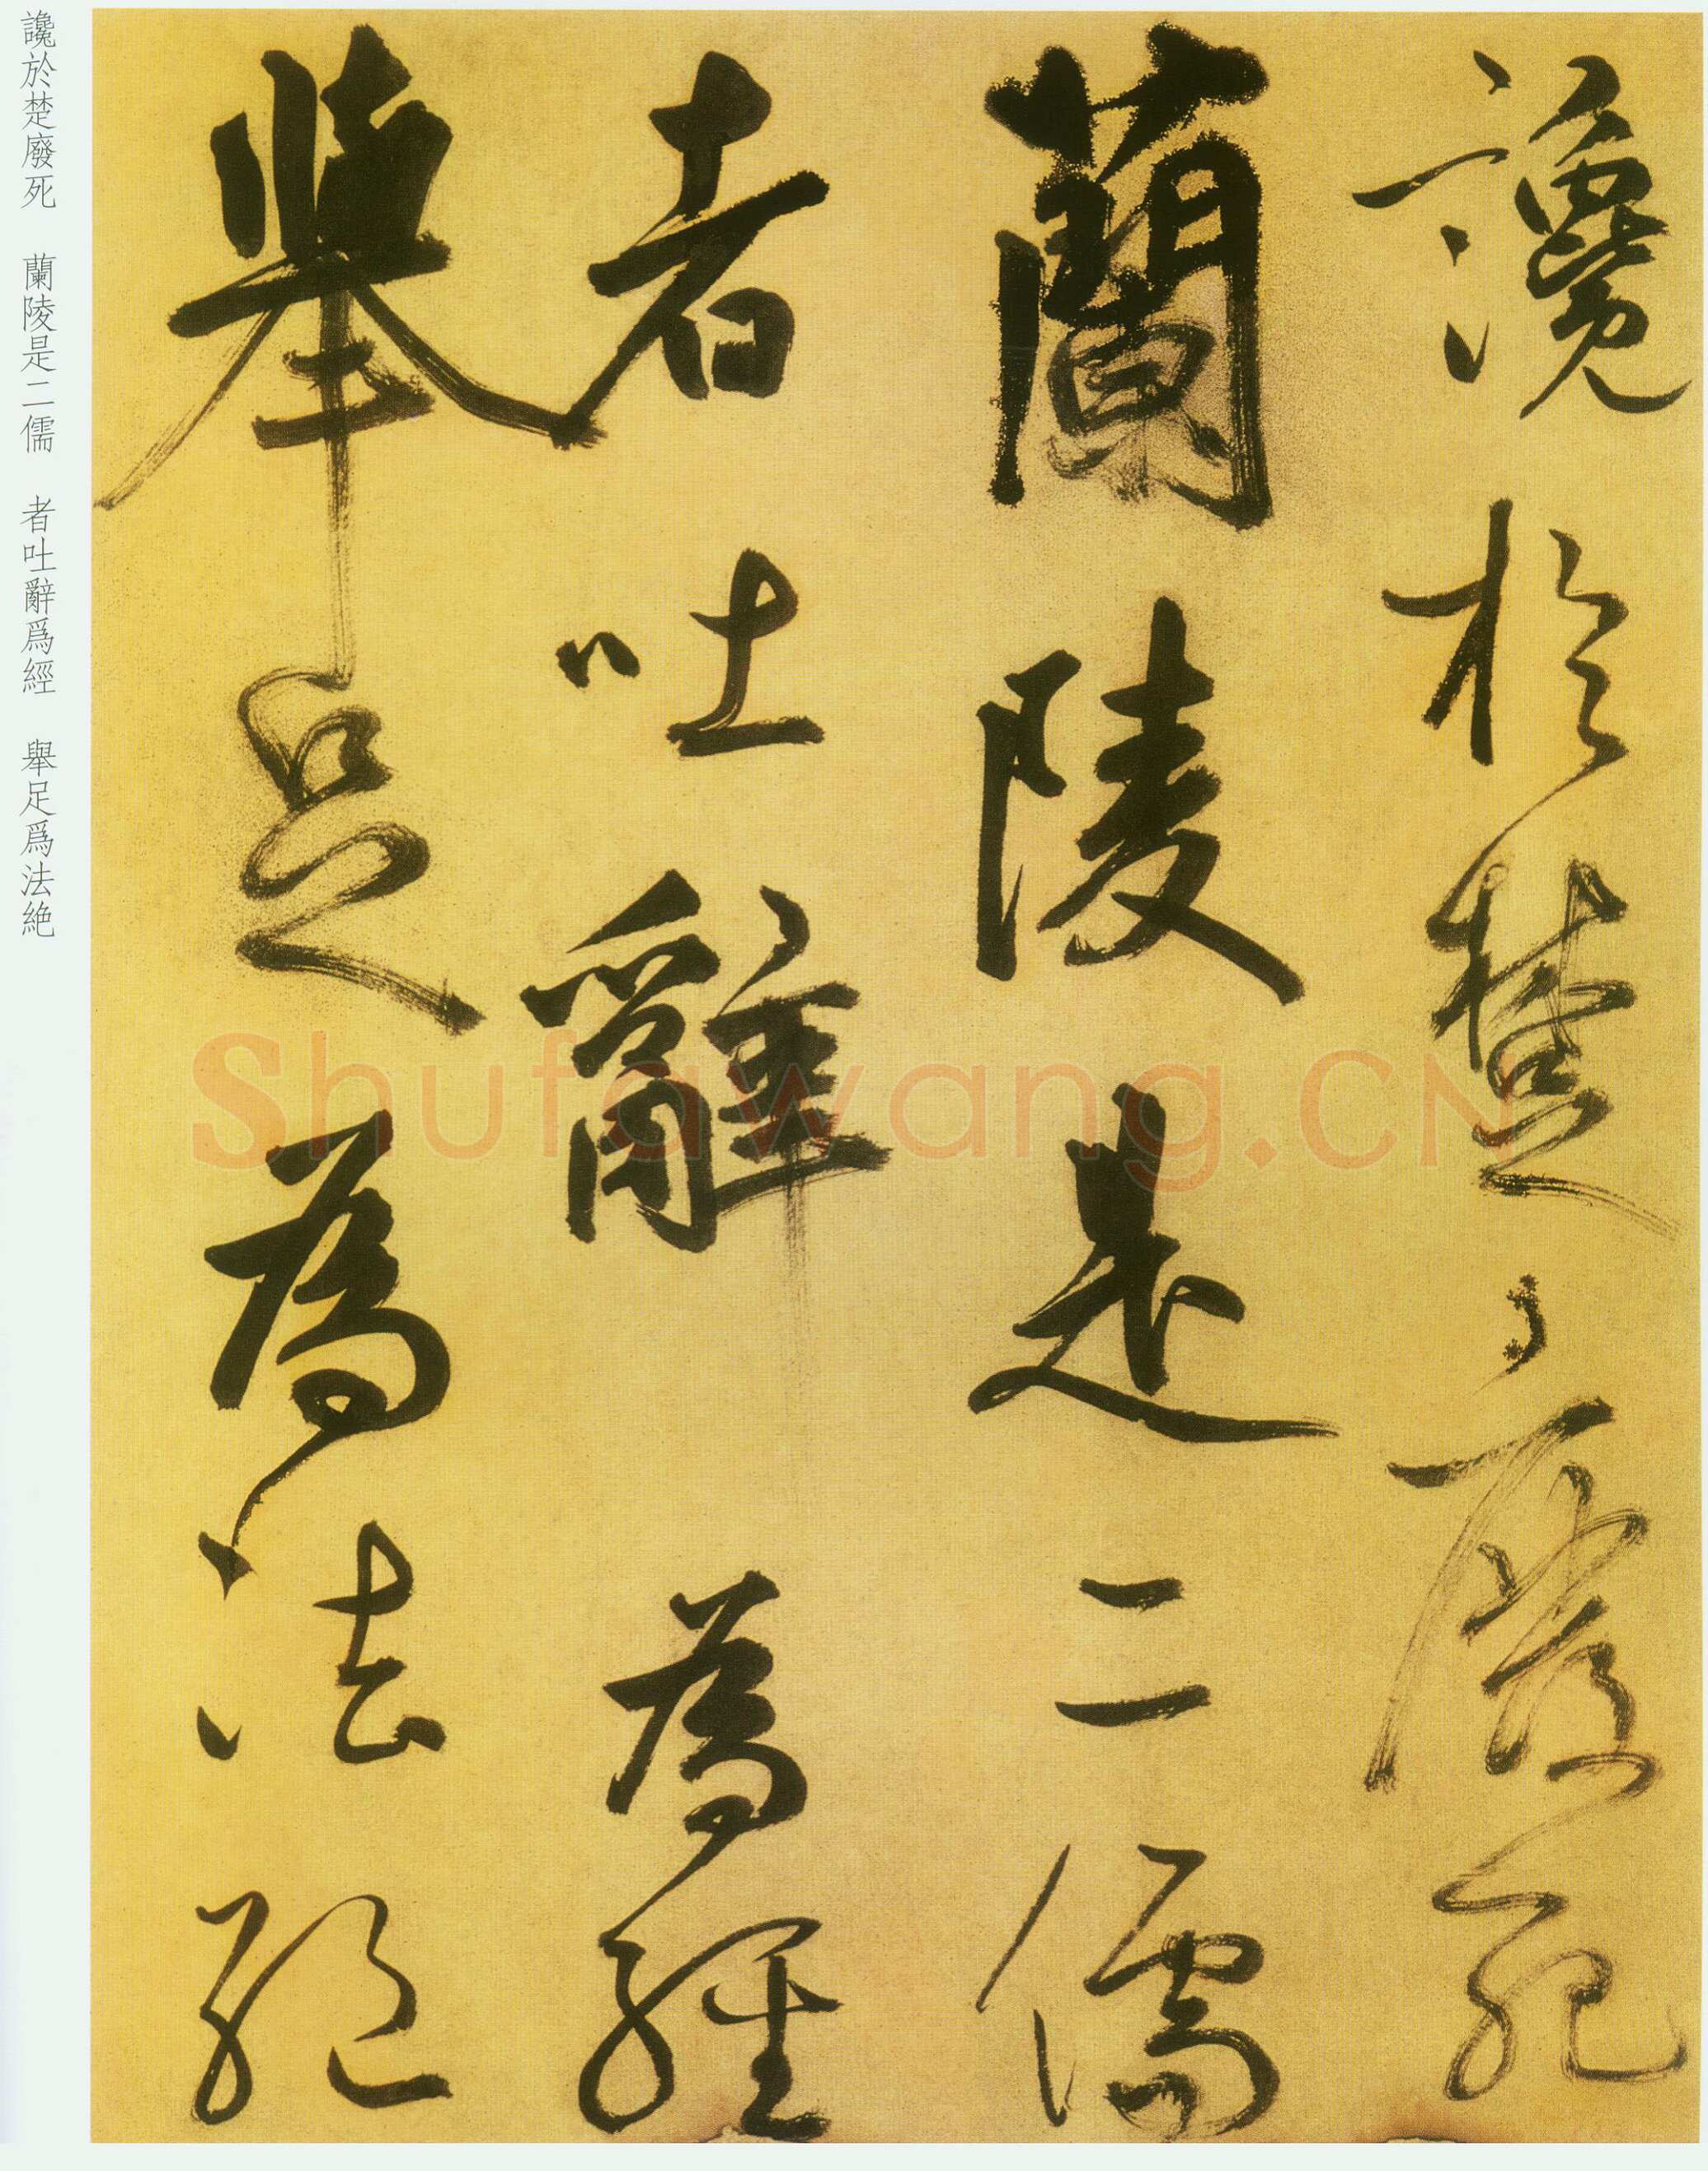 讒於楚〻廢死
蘭陵是二儒
者吐辭為經
舉足為法絕
讒於楚廢死 蘭陵是二儒 者吐辭爲經 舉足爲法絶
Shufawang.CN